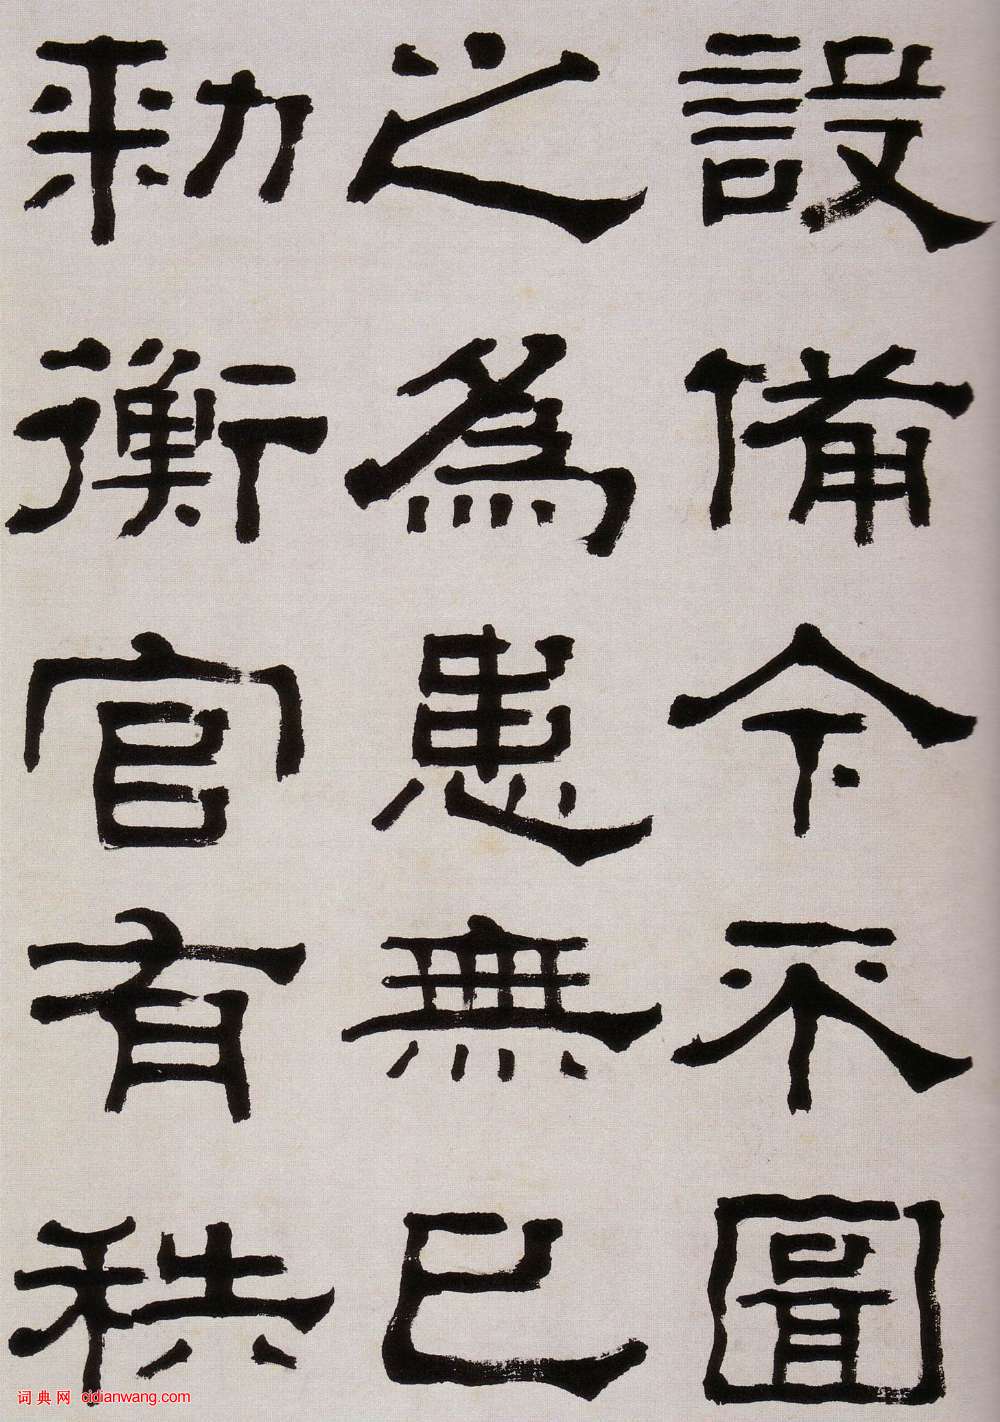 設備今不圖
之為患無已
勑衡官有秩
词典网 cidianwang.com